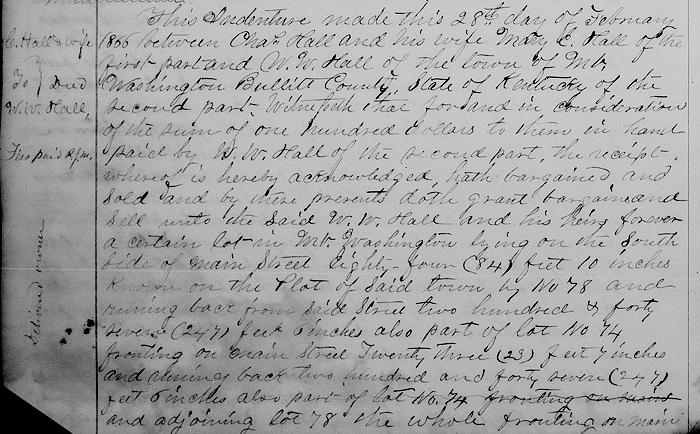 This Indenture made this 28th day of February
C. Hall & wife
1866 between Chas Hall and his wife Mary C. Hall of the
first part and W. W. Hall of the town of Mt.
To } Deed
Washington Bullitt County, State of Kentucky of the
W. W. Hall,
second part. Witnesseth that for and in consideration
of the sum of one hundred dollars to them in hand
paid by W. W. Hall of the second part, the receipt
whereof is hereby acknowledged, hath bargained and
sold and by these presents doth grant bargain and
sell unto the said W. W. Hall and his heirs forever
a certain lot in Mt. Washington lying on the South
side of main Street Eighty four (84) feet 10 inches
known on the Plot of said town by No 78 and
runing back from said Street two hundred & forty
seven (247) feet 6 inches also part of lot No 74
fronting on main Street Twenty three (23) feet 7 inches
and runing back two hundred and forty seven (247)
feet 6 inches also part of lot No. 74 fronting on main
and adjoining lot 78 the whole fronting on main
Delivered owner